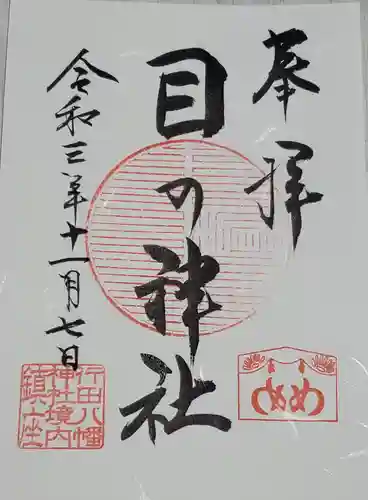 奉拝
目の神社
令和三年十一月七日
行田八幡
神社境内
鎮座
めめ